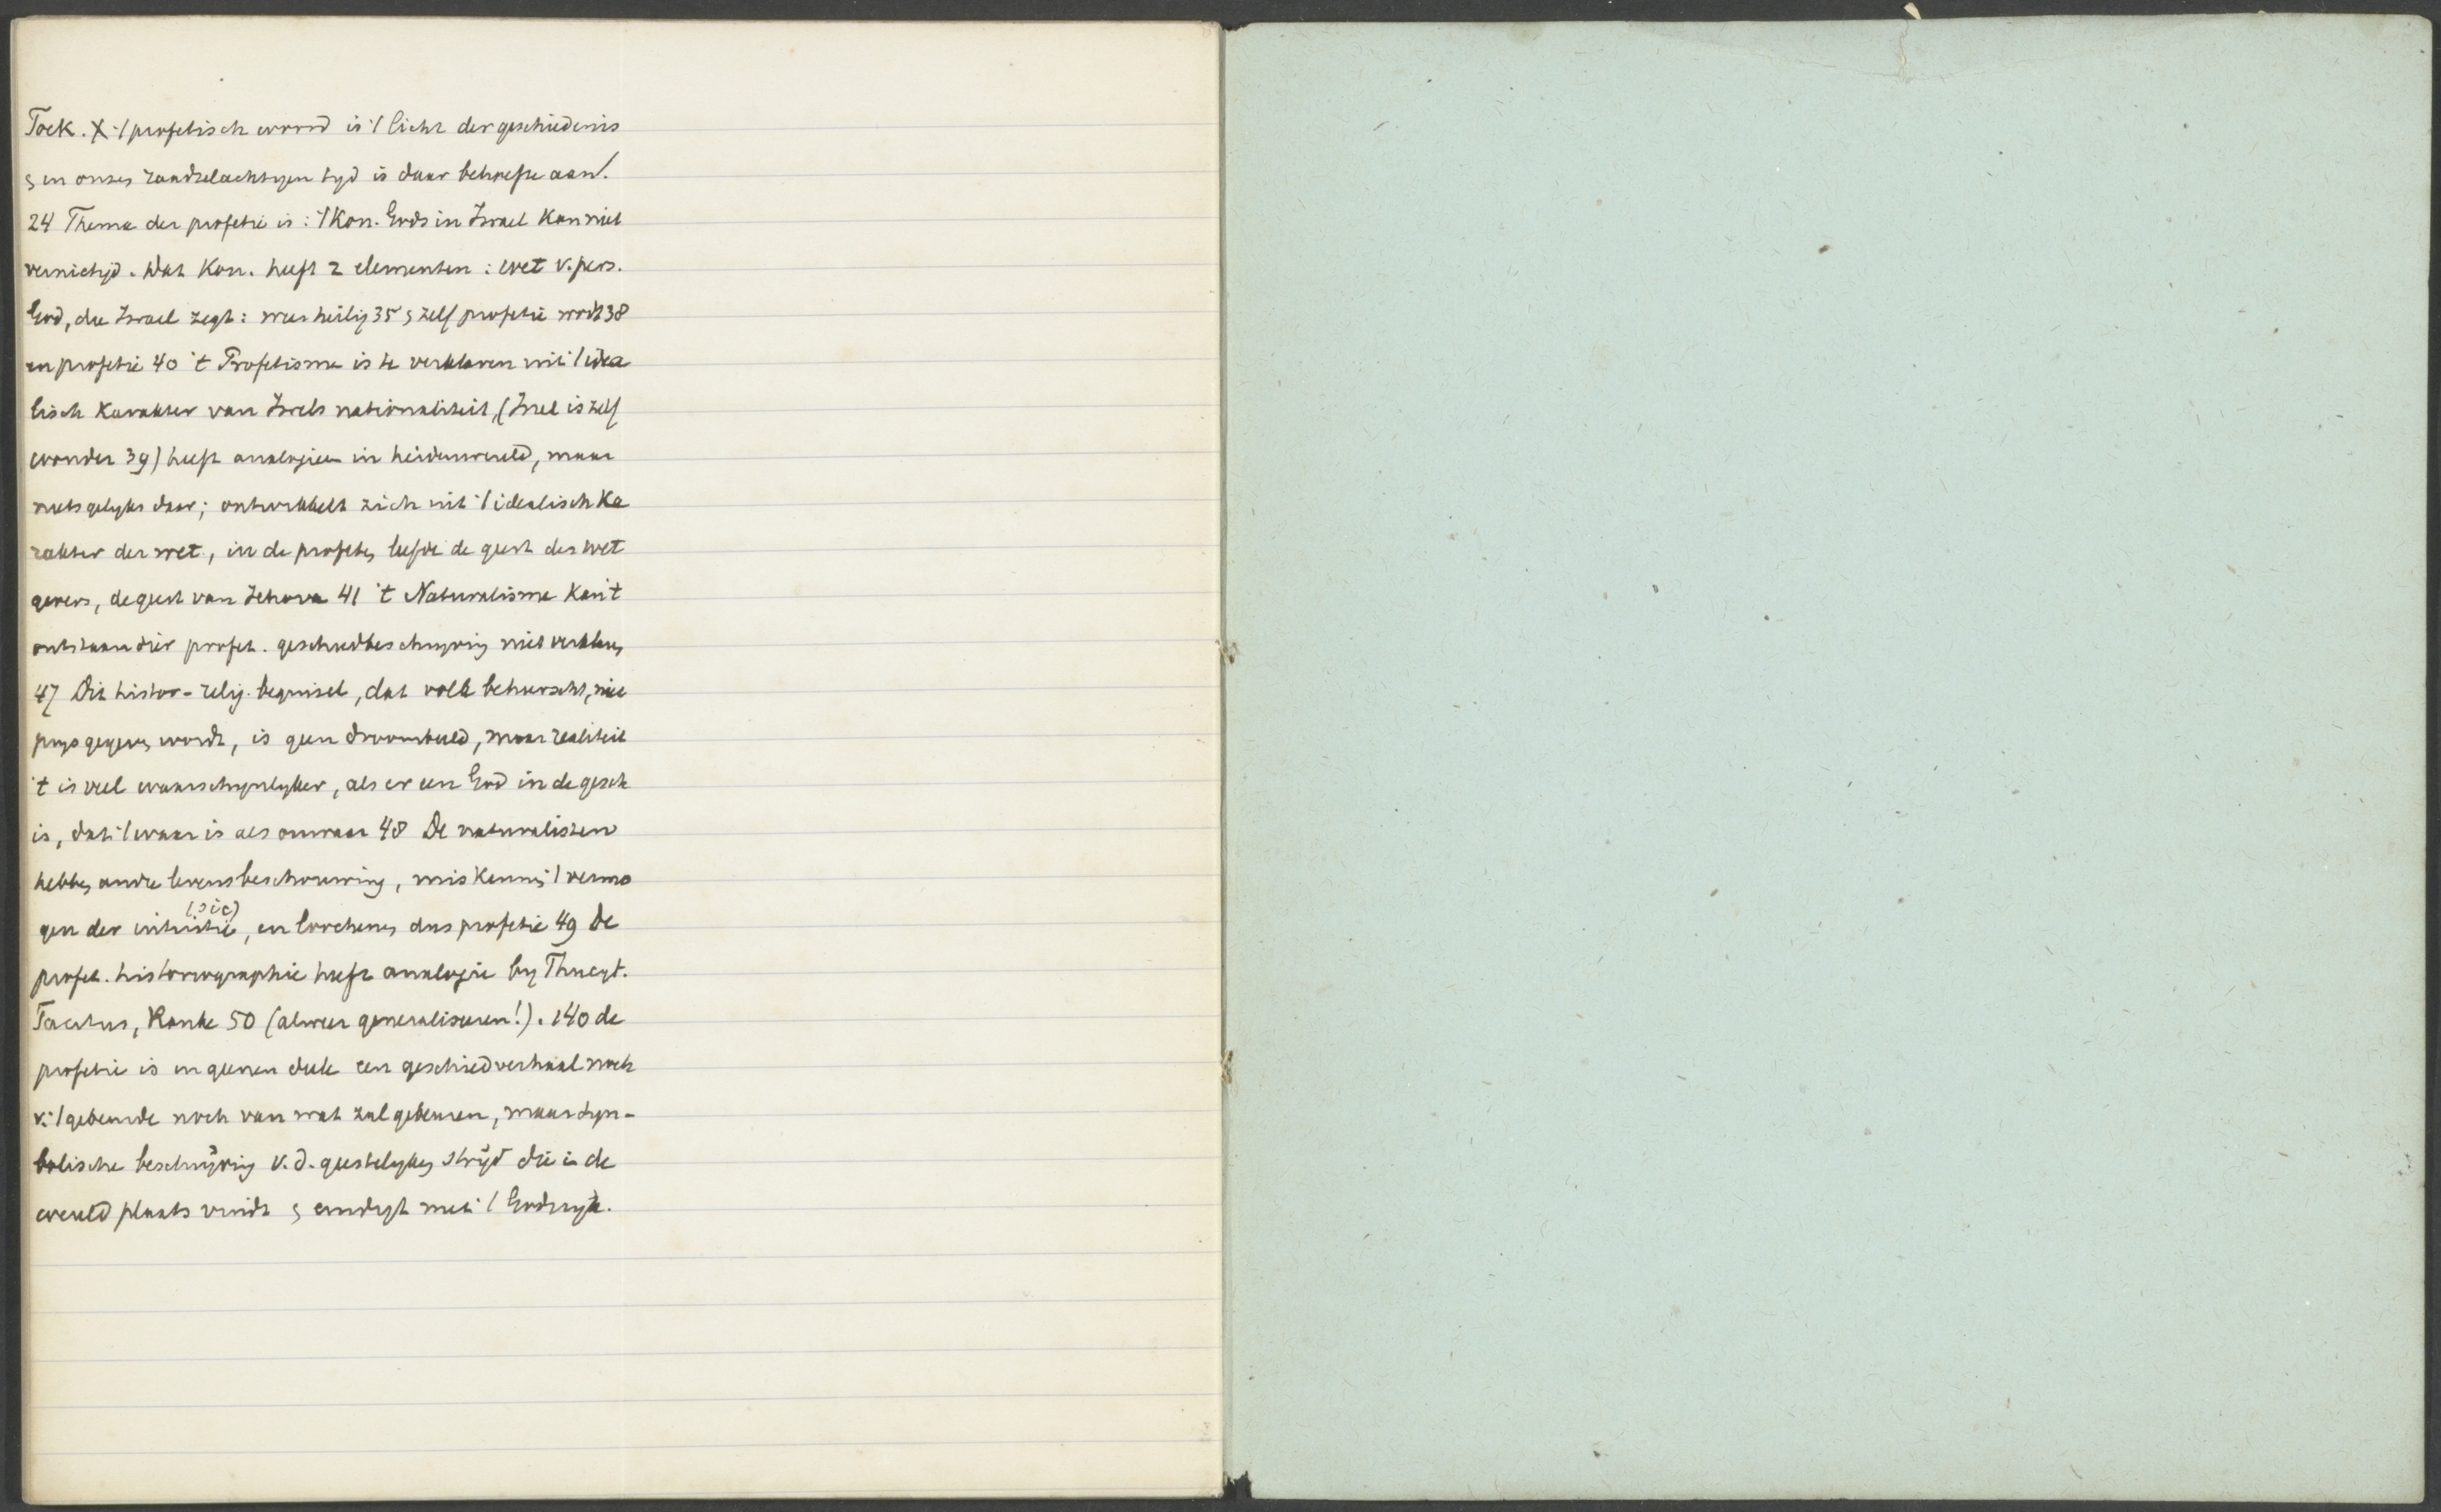 Toek. X 't profetisch woord is 't licht der geschiedenis
& in onzen raadselachtigen tyd is daar behoefte aan.
24 Thema der profetie is: 't Kon. Gods in Israel kan niet
vernietigd. Dat Kon. heeft 2 elementen: wet v. pers.
God, die Israel zegt: wees heilig 35 & zelf profetie wordt 38
en profetie 40 't Profetisme is te verklaren uit 't idea
lisch karakter van Isrels nationaliteit, (Isrel is zelf
wonder 39) heeft analogieen in heidenwereld, maar
niets gelyks daar; ontwikkelt zich uit 't idealisch ka
rakter der wet, in de profeten leefde de geest des wet
gevers, de geest van Jehova 41 't Naturalisme kan 't
ontstaan dier profet. geschiedbeschryving niet verklaren
47 Dit histor-relig. beginsel, dat volk beheerscht, nie
prysgegeven wordt, is geen droombeeld, maar realiteit
't is veel waarschynlyker, als er een God in de gesch
is, dat 't waar is als onwaar 48 De naturalisten
hebben andre levensbeschouwing, miskennen 't vermo
gen der intuitie (sic), en loochenen dus profetie 49 De
profet. historiographie heeft analogie by Thucyt.
Tacitus, Ranke 50 (alweer generaliseeren!). 140 de
profetie is in geenen deele een geschiedverhaal noch
v. 't gebeurde noch van wat zal gebeuren, maar sym-
bolische beschryving v.d. geestelyken stryd die in de
wereld plaats vindt & eindigt met 't Godsryk.